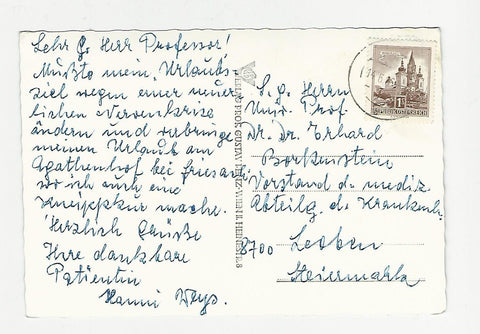 Sehr g. Herr Professor!
Mußte mein Urlaubs
ziel wegen einer neuer
lichen Nervenkrise
ändern und verbringe
meinen Urlaub am
Agathenhof bei Friesach
wo ich auch eine
Kneippkur mache.
Herzlich Grüße
Ihre dankbare
Patientin
Hanni
S. g. Herrn
Univ. Prof.
Dr. Dr. Erhard
Borkenstein
Vorstand d. mediz.
Abteilg d. Krankenh.
8700 Leoben
Steiermark
REPUBLIK ÖSTERREICH